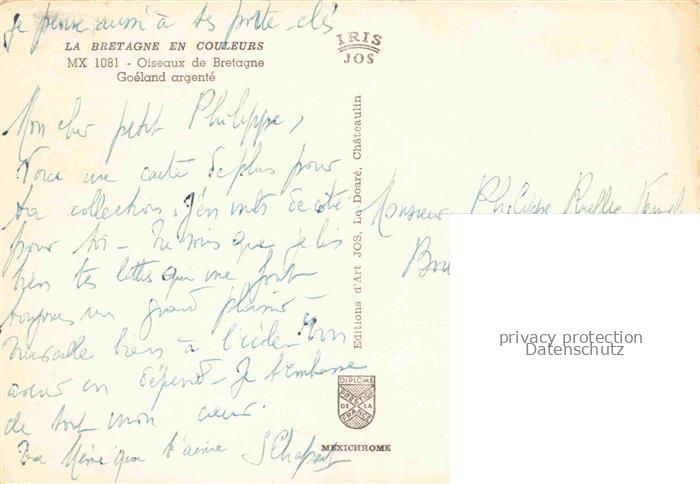 Je pense aussi à tes porte-clés
LA BRETAGNE EN COULEURS
MX 1081 - Oiseaux de Bretagne
Goéland argenté
IRIS
JOS
Mon cher petit Philippe,
Voici une carte de plus pour
ta collection. J'en mets de côté
pour toi - Tu vois que je lis
bien tes lettres qui me font
toujours un grand plaisir -
Travaille bien à l'école - Ton
avenir en dépend - Je t'embrasse
de tout mon cœur.
Ta Mémé qui t'aime
Editions d'Art JOS, Le Doaré, Châteaulin
Monsieur Philippe
DIPLOME
PRESTIGE
DE LA
FRANCE
MEXICHROME
privacy protection
Datenschutz